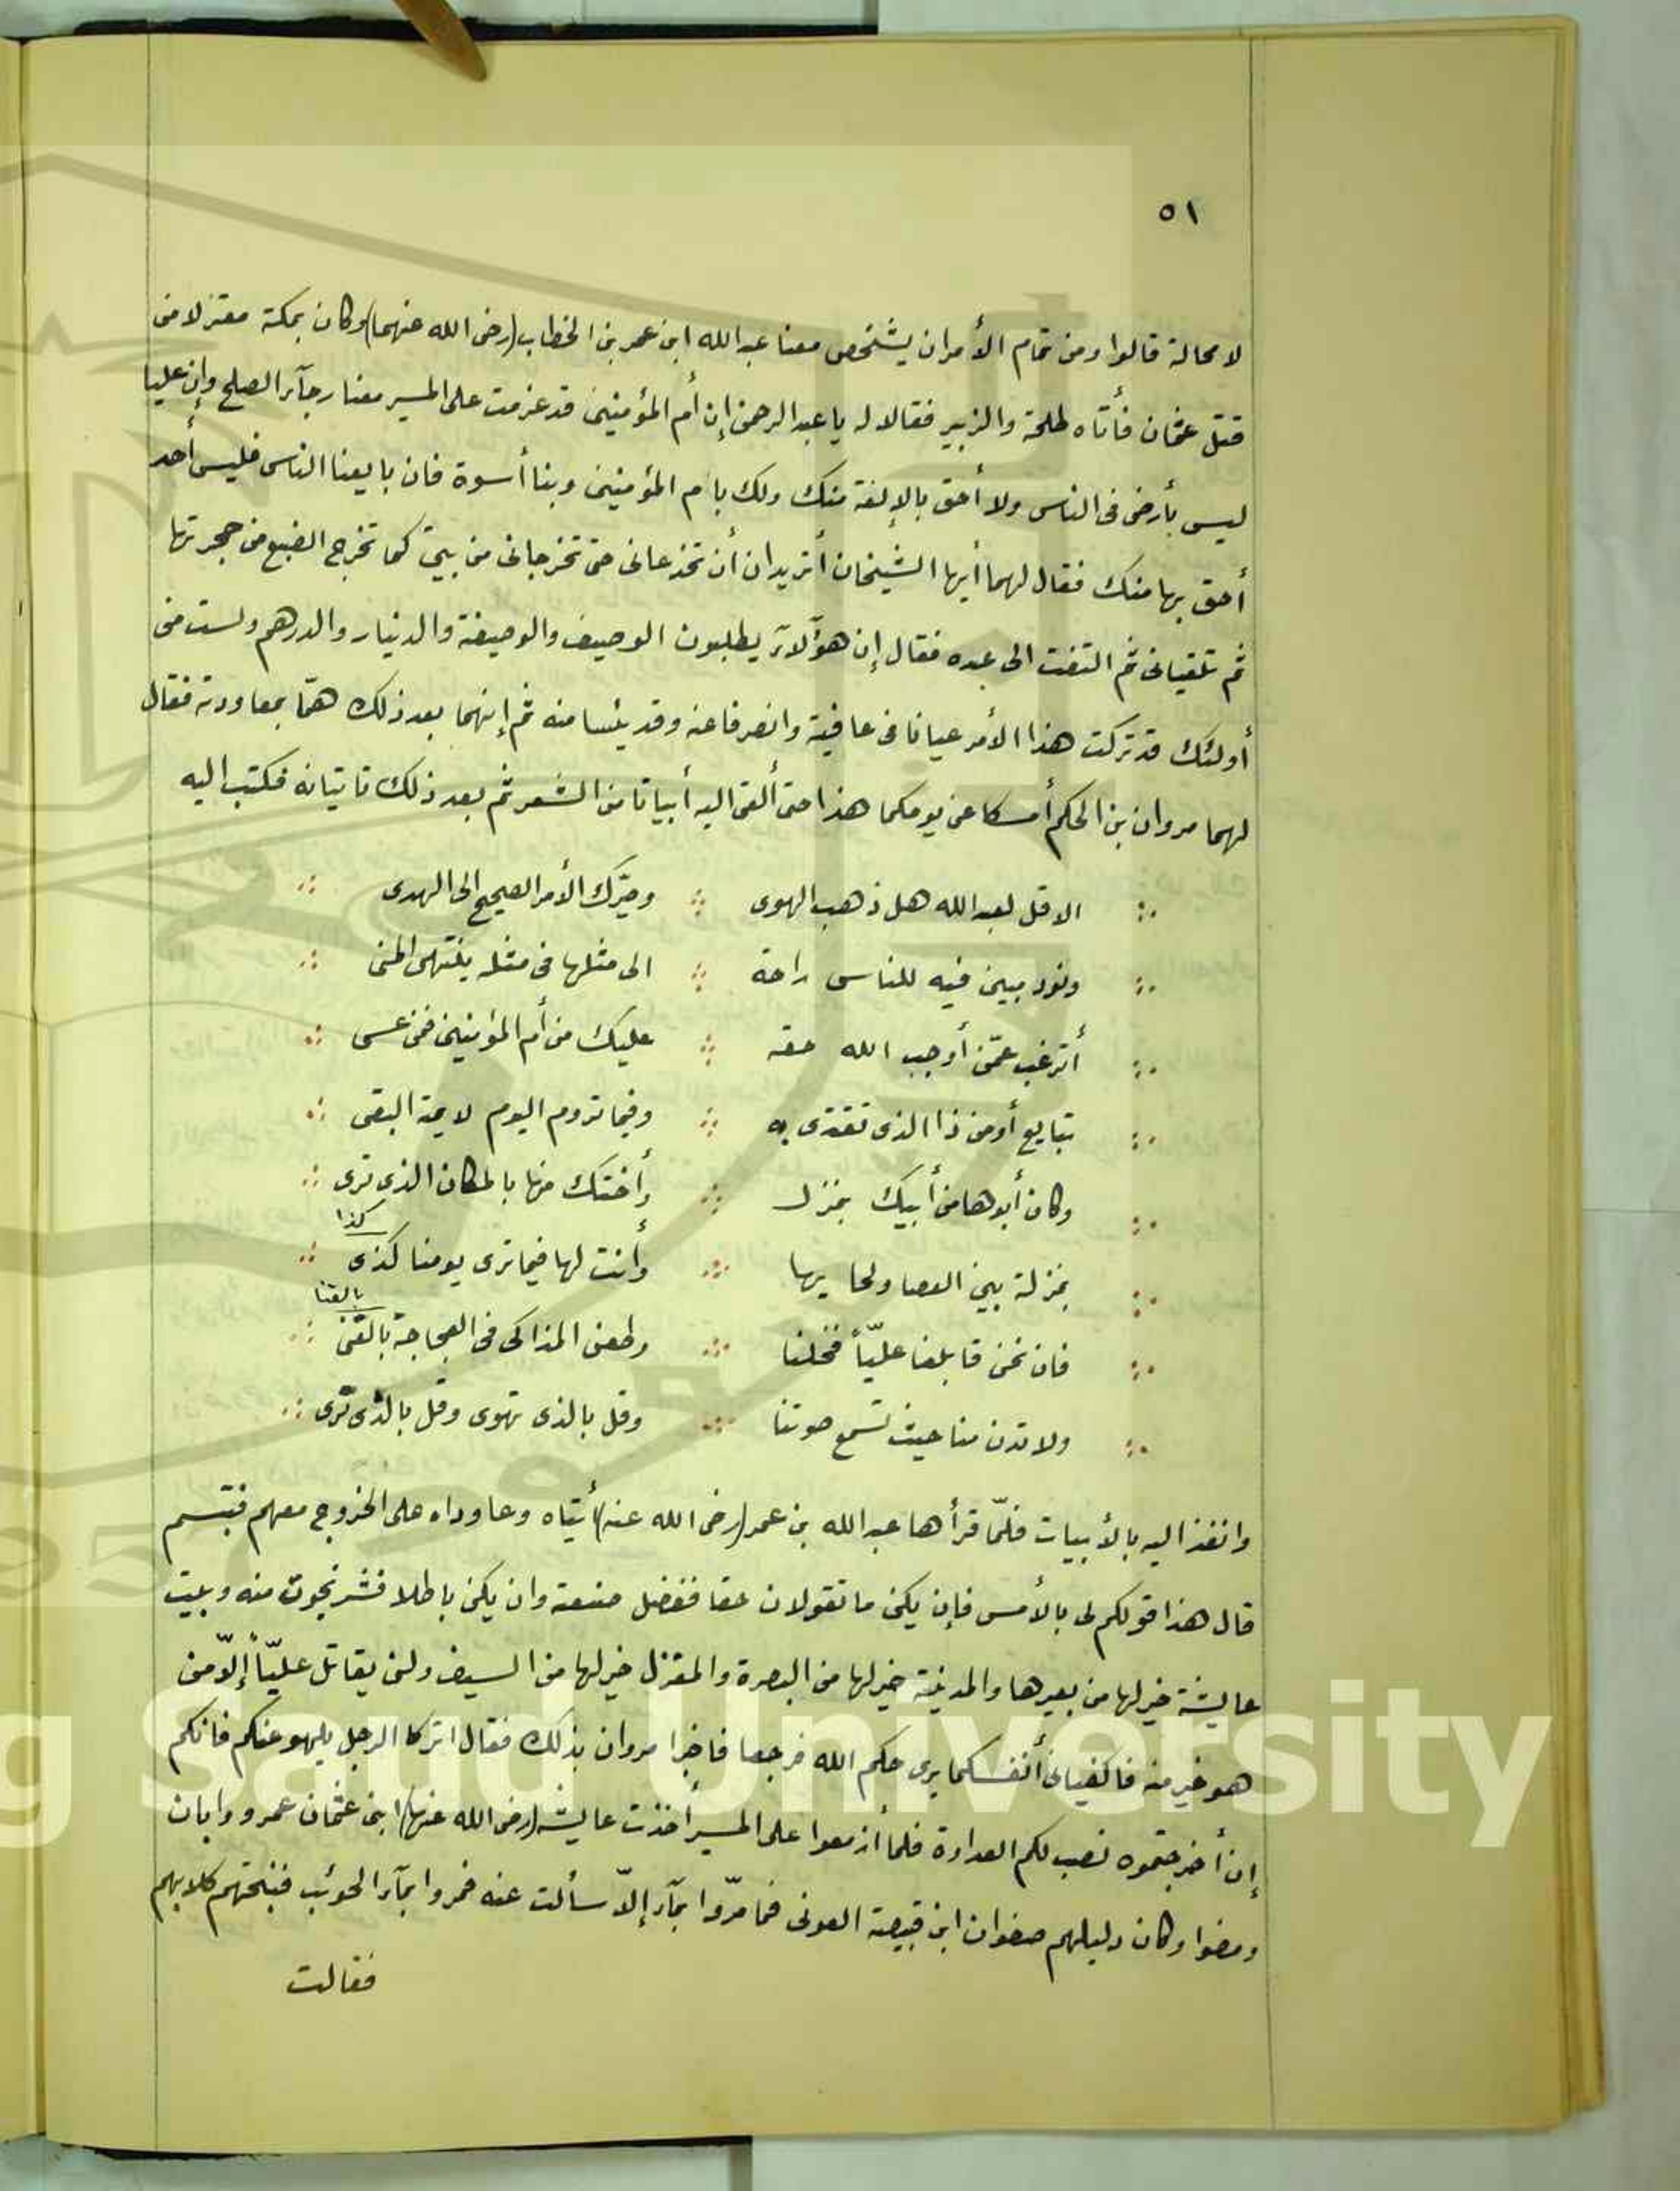 ٥١
لا محالة قالوا ومن تمام الأمر ان يشخص معنا عبد الله ابن عمر بن الخطاب (رضى الله عنهما) وكان بمكة معتزلا من
قتل عثمان فأتاه طلحة والزبير فقالا له يا عبد الرحمن إن أم المؤمنين قد عزمت على المسير معنا رجآء الصلح وإن عليا
ليس بأرضى فى الناس ولا أحق بالإلفة منك ولك بام المؤمنين وبنا أسوة فان بايعنا الناس فليس أحد
أحق بها منك فقال لهما أيها الشيخان أتريدان أن تخدعانى حتى تخرجانى من بيتى كما تخرج الضبع من جحرتها
ثم تلقيانى ثم التفت الى عبده فقال إن هؤلآء يطلبون الوصيف والوصيفة والدينار والدرهم ولست من
أولئك قد تركت هذا الأمر عيانا فى عافية وانصرفا عنه وقد يئسا منه ثم إنهما بعد ذلك همّا بمعاودته فقال
لهما مروان بن الحكم أمسكا عن يومكما هذا حتى ألقى اليه أبياتا من الشعر ثم بعد ذلك تاتيانه فكتب اليه
الا قل لعبد الله هل ذهب الهوى وصيّرك الأمر الصحيح الى الهدى
ونود مبين فيه للناس راحة الى مثلها فى مثله ينتهى المنى
أترغب عمّن أوجب الله حقه عليك من أم المؤمنين فمن عسى
تبايع أو من ذا الذى تقتدى به وفيما تروم اليوم لايمة البقى
وكان أبوها من أبيك بمنزل وأختك منها بالمكان الذى ترى
كذا
بمنزلة بين العصا ولحايها وأنت لها فيما ترى يومنا كذى
بالقنا
فان نحن قابلنا عليّاً فخلنا وطعن المذاكى فى العجاجة بالقنى
ولا تدن منا حيث تسمع صوتنا وقل بالذى تهوى وقل بالذى ترى
وانفذ اليه بالأبيات فلمّا قرأها عبد الله بن عمر (رضى الله عنه) أتياه وعاوداه على الخروج معهم فتبسم
قال هذا قولكم لى بالأمس فإن يكن ما تقولان حقا ففضل ضيعته وان يكن باطلا فشر نجوت منه وبيت
عايشة خير لها من بعيرها والمدينة خير لها من البصرة والمعتزل خير لها من السيف ولن يقاتل عليّاً إلاّ من
هو خير منه فاكفيانى أنفسكما يرى حكم الله فرجعا فاخبرا مروان بذلك فقال اتركا الرجل يلهو عنكم فانكم
إن أخرجتموه نصب لكم العداوة فلما أزمعوا على المسير أخذت عايشه (رضى الله عنها) ابنى عثمان عمرو وابان
ومضوا وكان دليلهم صفوان ابن قبيصة العونى فما مرّوا بمآء إلاّ سألت عنه فمروا بمآء الحوئب فنبحتهم كلابهم
فقالت
King Saud University